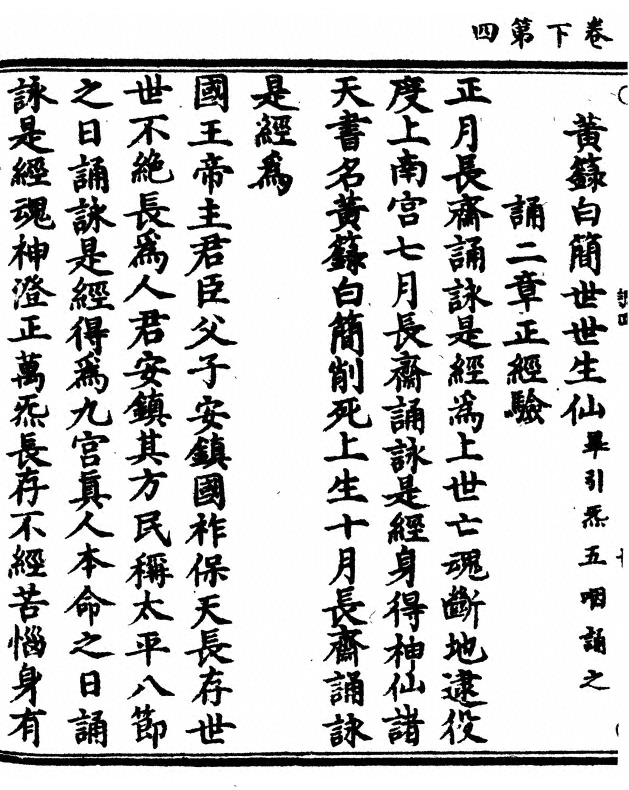 卷下第四
黃籙白簡世世生仙畢引炁五咽誦之
誦二章正經驗
正月長齋誦詠是經爲上世亡魂斷地逮役
度上南宮七月長齋誦詠是經身得神仙諸
天書名黃籙白簡削死上生十月長齋誦詠
是經爲
國王帝主君臣父子安鎮國祚保天長存世
世不絶長爲人君安鎮其方民稱太平八節
之日誦詠是經得爲九宮眞人本命之日誦
詠是經魂神澄正萬炁長存不經苦惱身有